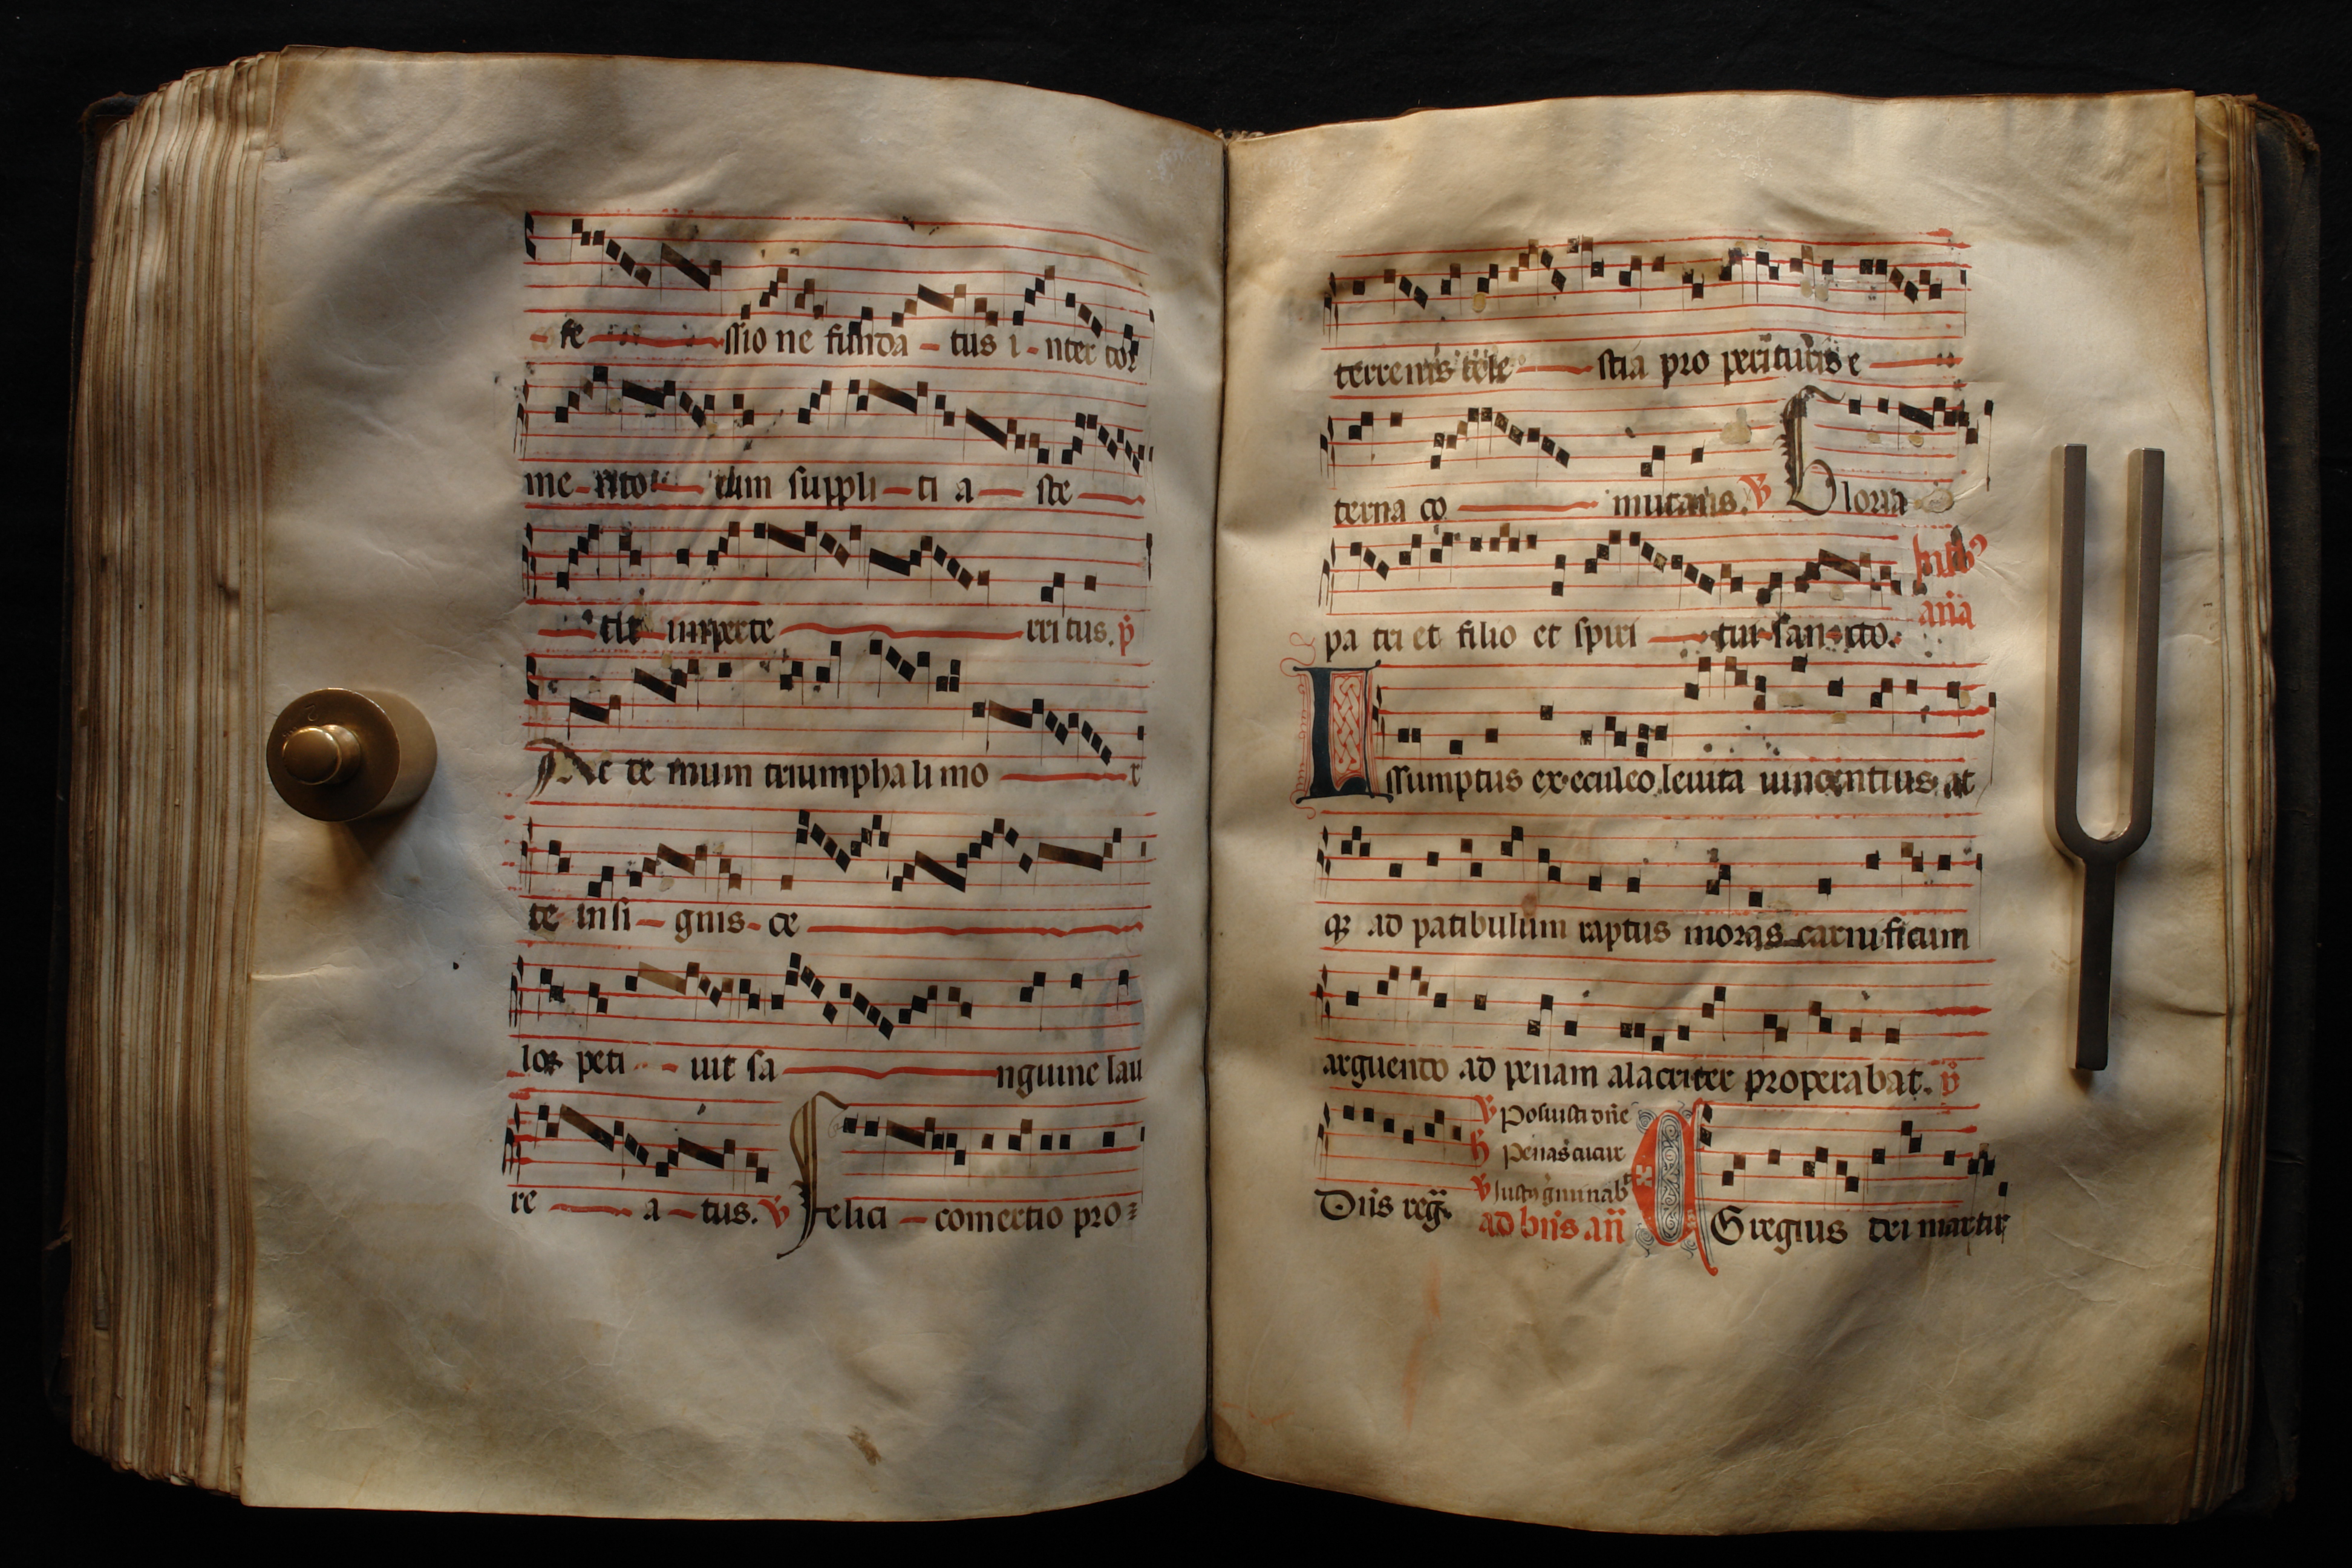 fe ssio ne funda tus i nter tor
me nto rum suppli ti a ste
tit imperte rri tus. p̄
Ac te mum triumpha li mo r
te insi gnis ce
los peti uit sa nguine lau
re a tus. ℣ Felici comertio pro
terrenis cele stia pro perituris e
terna co mutans. ℣ Gloria
pa tri et filio et spiri tui sancto.
aña
Assumptus ex eculeo leuita uincentius at
qꝫ ad patibulum raptus moras carnificum
arguendo ad penam alacriter properabat. p̄
℣ Posuisti dñe
penas
Dñs reg̃.
ad bñs añ Egregius dei martir